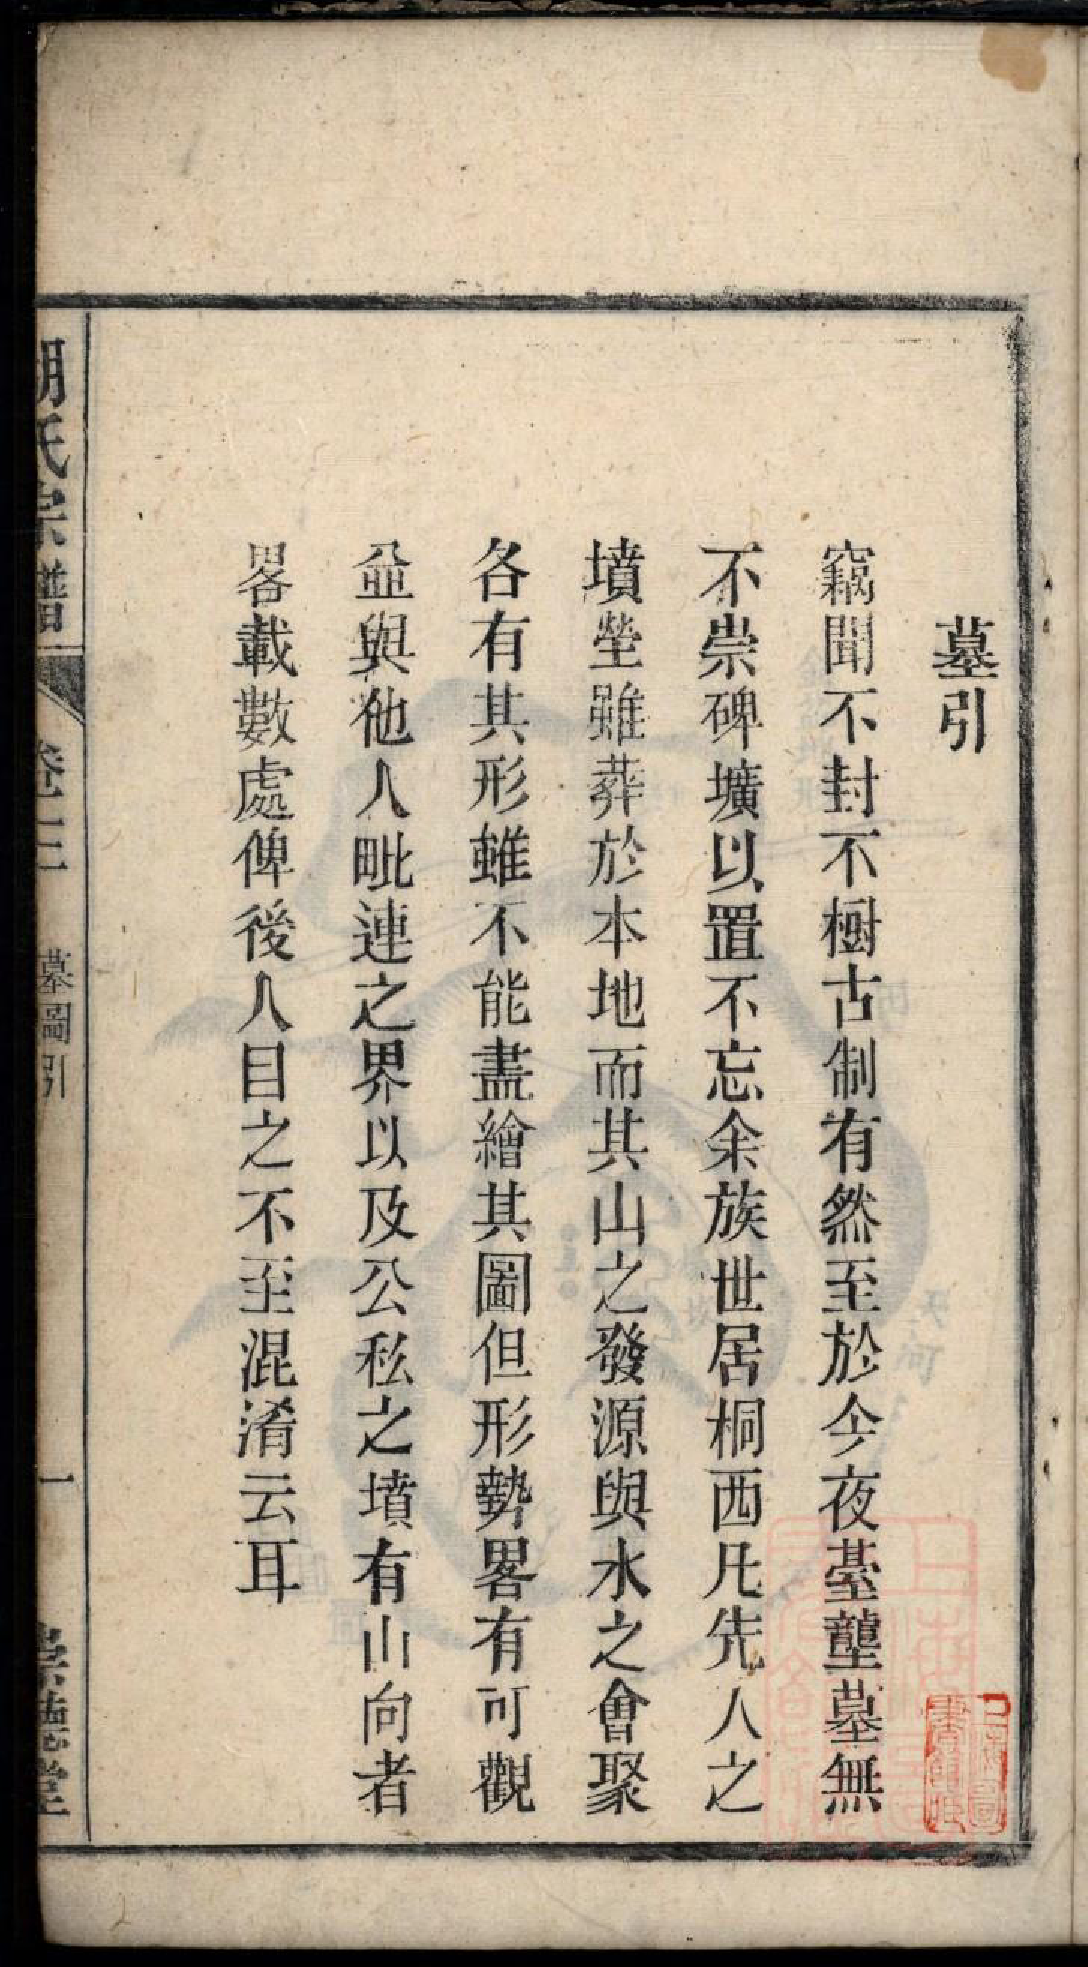 墓引
竊聞不封不樹古制有然至於今夜臺壟墓無
不崇碑壙以置不忘余族世居桐西凡先人之
墳塋雖葬於本地而其山之發源與水之會聚
各有其形雖不能盡繪其圖但形勢畧有可觀
並與他人毗連之界以及公私之墳有山向者
畧載數處俾後人目之不至混淆云耳
胡氏宗譜
卷十二
墓圖引
一
崇德堂